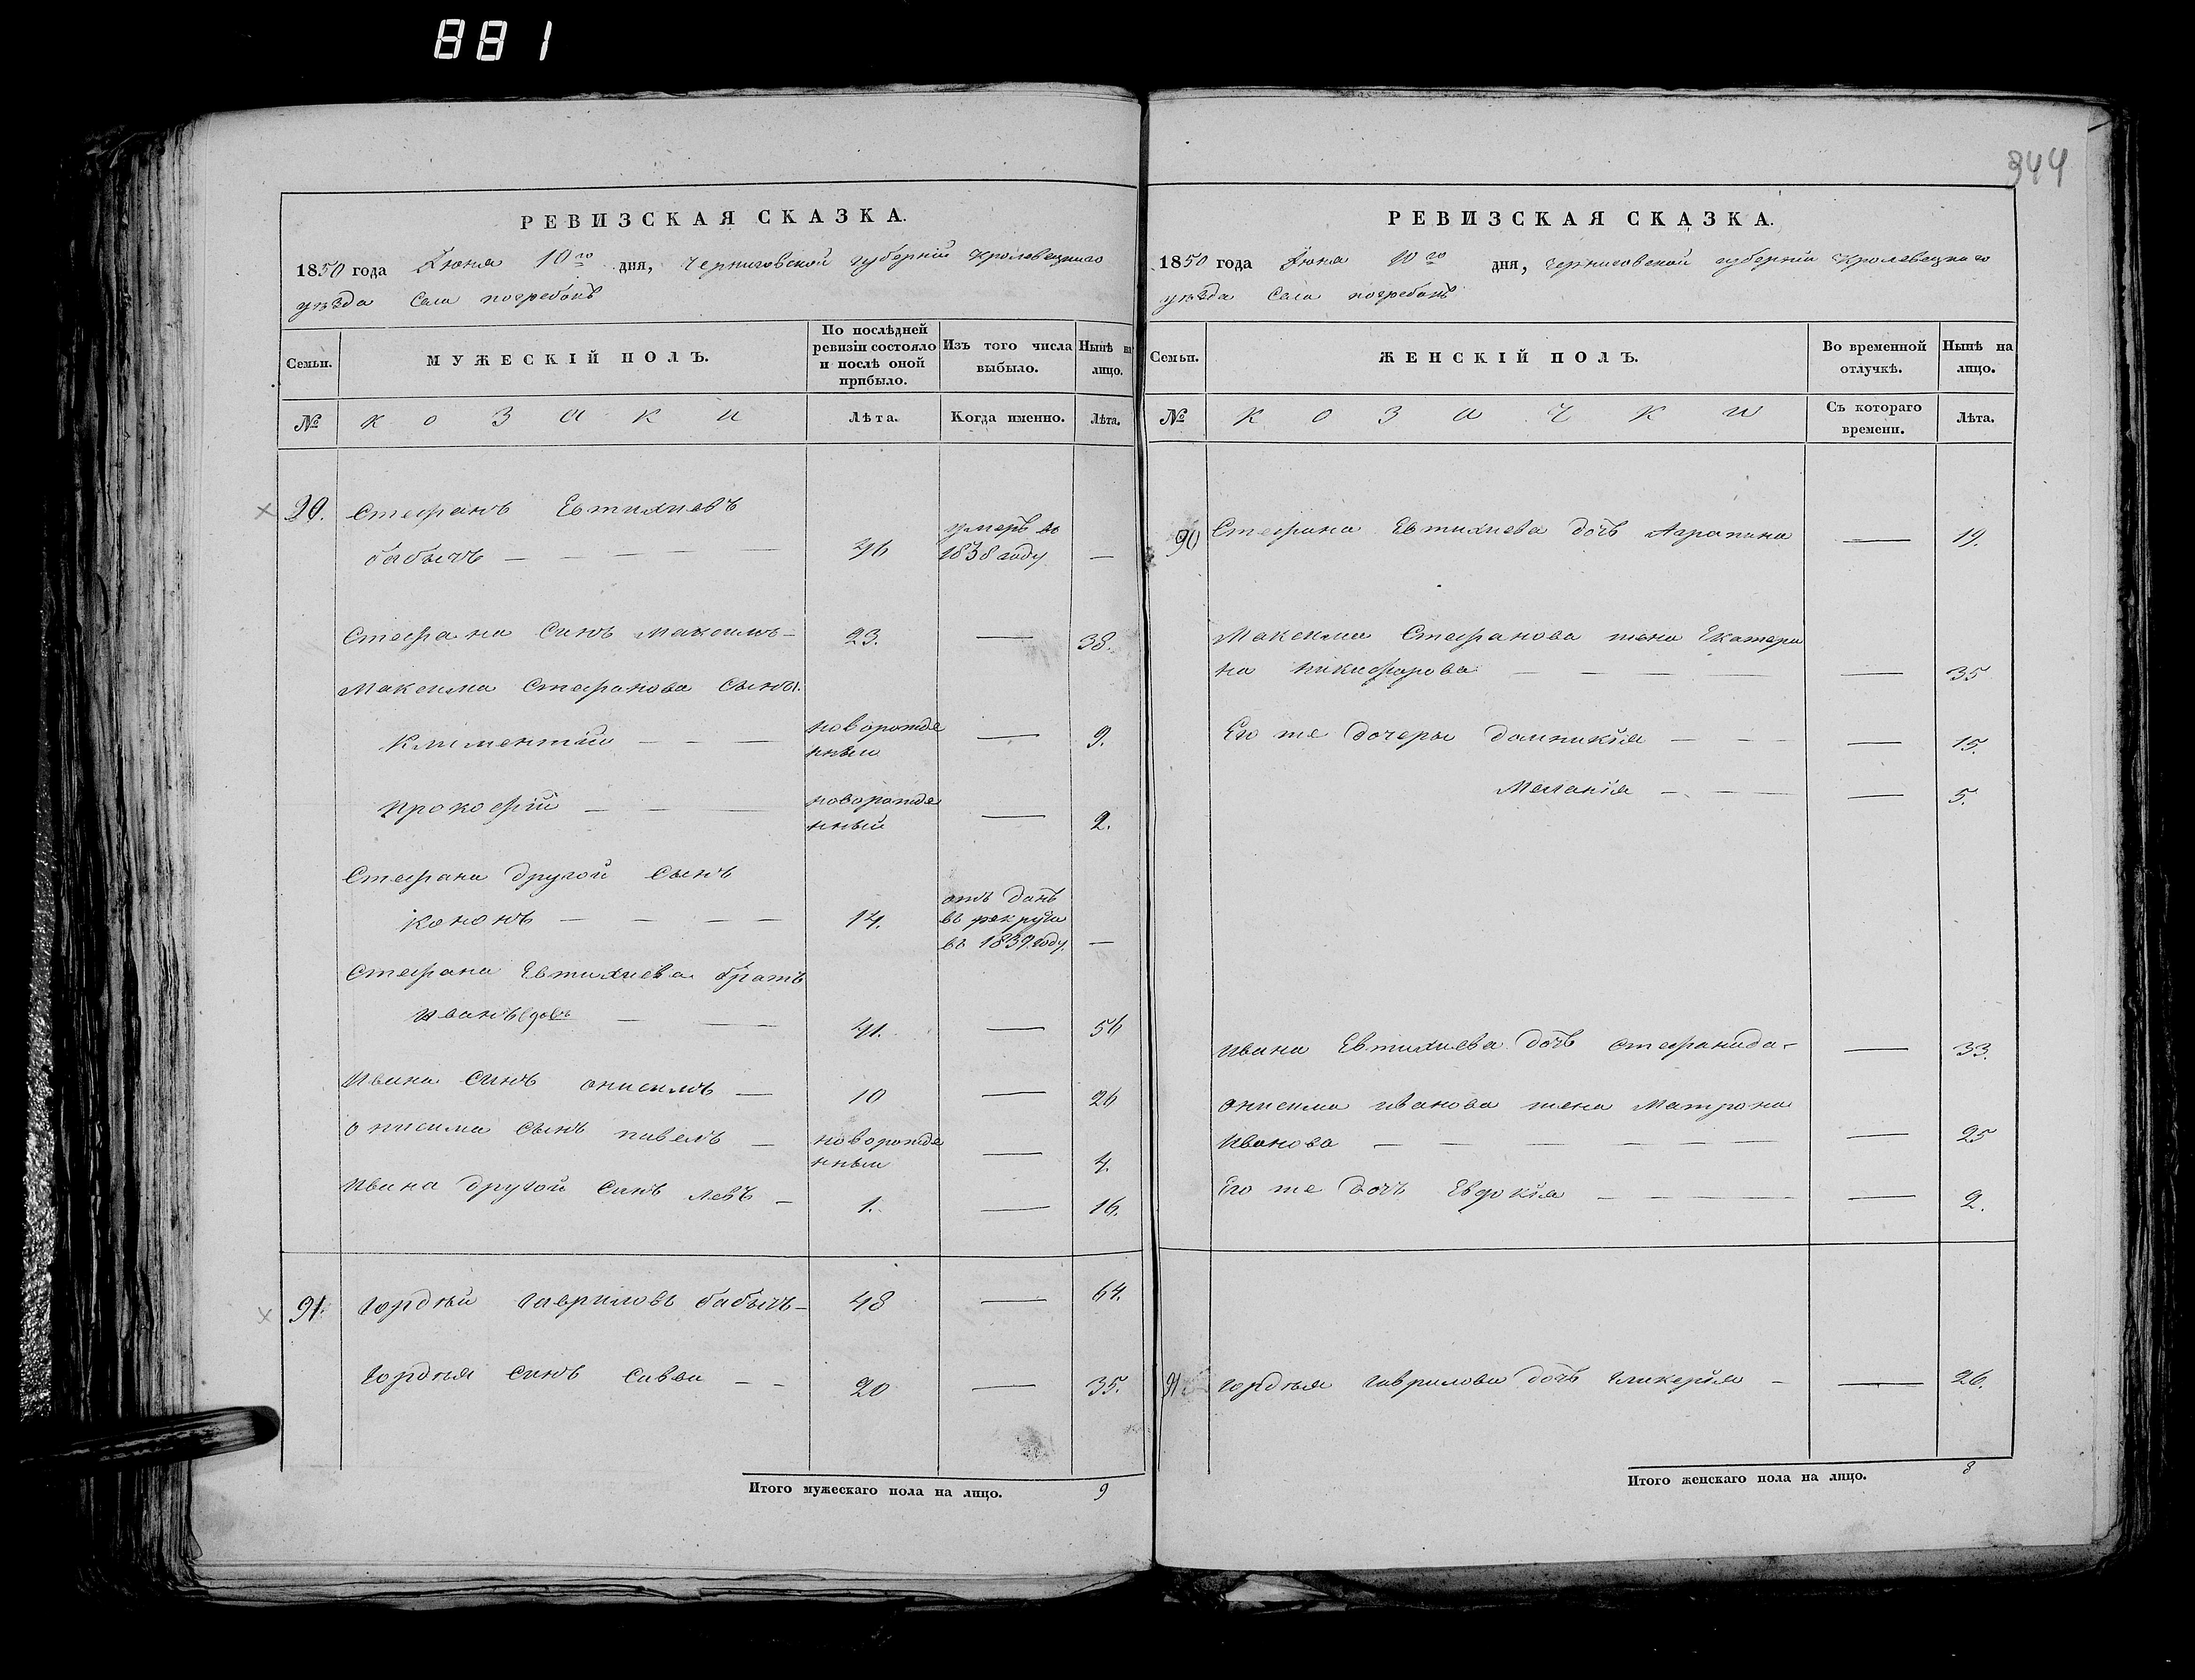 881
344
РЕВИЗСКАЯ СКАЗКА.
1850 года Июня 10го дня, Черниговской губерніи Кролевецкаго
уѣзда Села погребокъ
Семьи.
МУЖЕСКІЙ ПОЛЪ.
По послѣдней
ревизіи состояло
и послѣ оной
прибыло.
Изъ того числа
выбыло.
Нынѣ на
лицо.
№
козаки
Лѣта.
Когда именно.
Лѣта.
90. Стефанъ Евтихиевъ
бабычъ — 46 умеръ въ 1838 году —
Стефана синъ Максимъ — 23. — 38.
Максима Стефанова сыны.
Климентий — новорожде
нный — 9.
Прокофий — новорожде
нный — 2.
Стефана другой сынъ
Кононъ — 14. отъ данъ
въ рекруты
въ 1839 году. —
Стефана Евтихиева братъ
Иванъ вдовъ — 41. — 56
Ивана синъ онисимъ — 10 — 26
онисима сынъ павелъ — новорожде
нный — 4.
Ивана другой синъ левъ — 1. — 16.
91. Гордѣй Гавриловъ бабычъ — 48 — 64.
Гордѣя синъ Савва — 20 — 35.
Итого мужескаго пола на лицо. 9
РЕВИЗСКАЯ СКАЗКА.
1850 года Июня 10го дня, Черниговской губерніи Кролевецкаго
уѣзда Села погребокъ
Семьи.
ЖЕНСКІЙ ПОЛЪ.
Во временной
отлучкѣ.
Нынѣ на
лицо.
№
козачки
Съ котораго
времени.
Лѣта.
90 Стефана Евтихиева дочь Агрипина — 19.
Максима Стефанова жена Екатери
на Никифорова — 35
Его же дочеры Домникія — 15.
Меланія — 5.
Ивана Евтихиева дочь Стефанида — 33.
Онисима Иванова жена Матрона
Иванова — 25
Его же дочь Евдокія — 2.
91. Гордѣя Гаврилова дочь Гликерія — 26.
Итого женскаго пола на лицо. 8